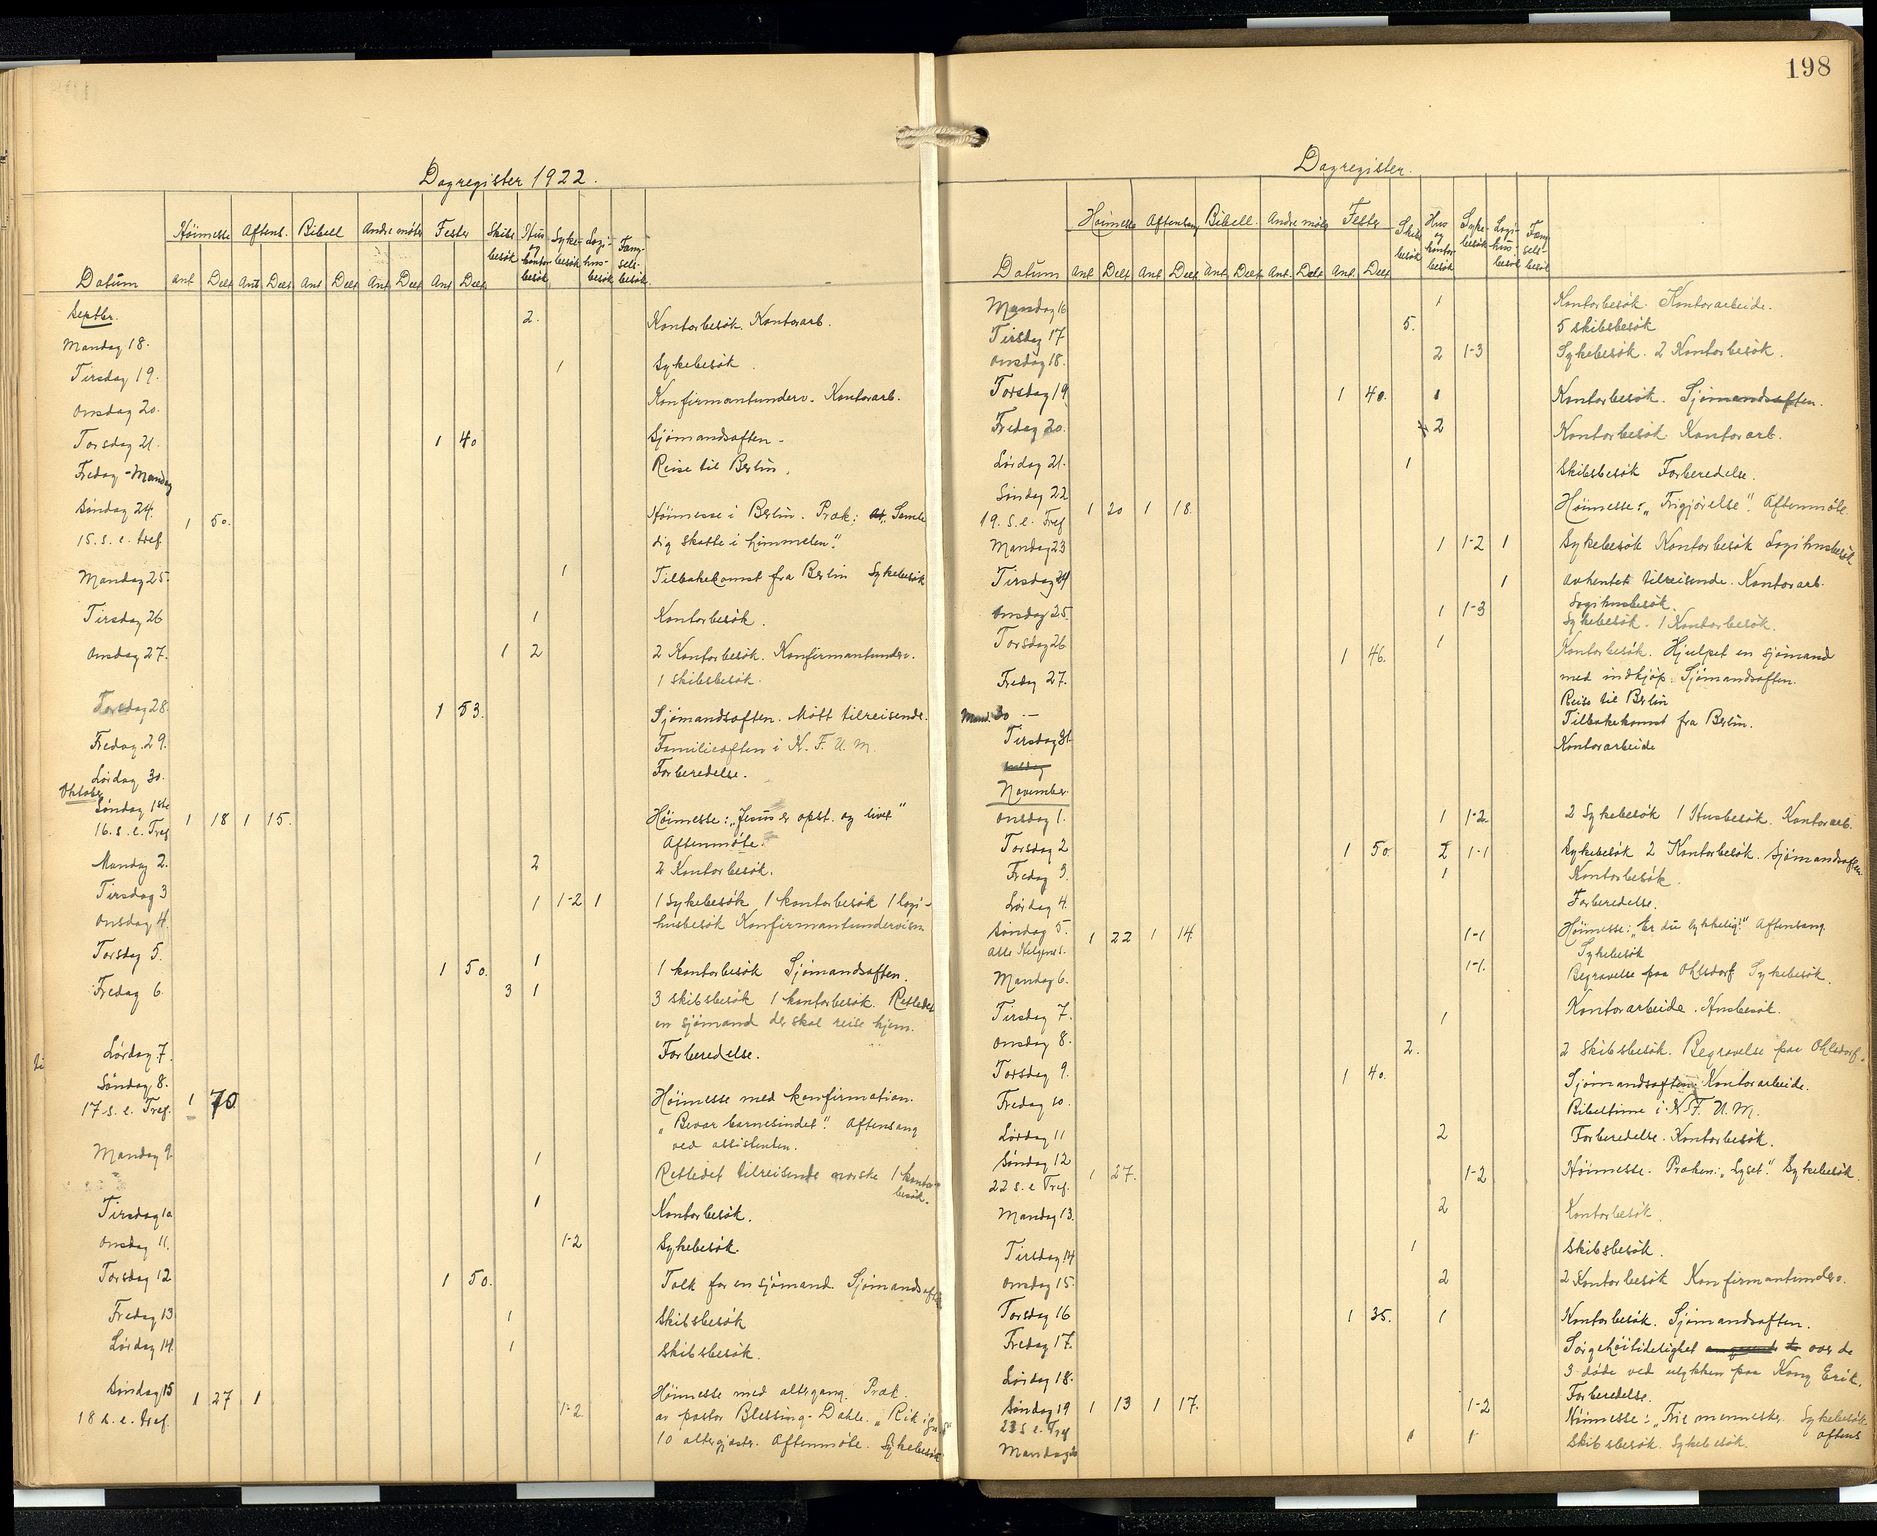 Dagregister 1922.
Høimesse Aftens. Bibell Andre møter Fester Skibs besøk Hus og kontor besøk Syke- besøk Logi- hus- besøk Fæng- sels- besøk
Datum ant Delt Ant Delt Ant Delt Ant Delt Ant Delt
Septbr.
Mandag 18. 2. Kontorbesøk. Kontorarb.
Tirsdag 19. 1 Sykebesøk.
Onsdag 20. Konfirmantunderv. Kontorarb.
Torsdag 21. 1 40 Sjømandsaften -
Fredag - Mandag Reise til Berlin.
Søndag 24. 1 50. Høimesse i Berlin. Præk: Samle
15. s. e. tref. dig skatte i himmelen."
Mandag 25. 1 Tilbakekomst fra Berlin Sykebesøk
Tirsdag 26 1 Kontorbesøk.
Onsdag 27. 1 2 2 Kontorbesøk. Konfirmantunderv.
1 skibsbesøk.
Torsdag 28. 1 53. Sjømandsaften. Møtt tilreisende.
Fredag 29. Familieaften i K. F. U. M.
Lørdag 30. Forberedelse.
Oktober
Søndag 1ste 1 18 1 15. Høimesse: „Jesus er opst. og lever"
16. s. e. Tref Aftenmøte.
Mandag 2. 2 2 Kontorbesøk.
Tirsdag 3 1 1-2 1 1 Sykebesøk 1 kontorbesøk 1 logi-
Onsdag 4. husbesøk Konfirmantundervisn
Torsdag 5. 1 50. 1 1 kontorbesøk Sjømandsaften.
Fredag 6. 3 1 3 skibsbesøk 1 kontorbesøk. Retledet
en sjømand der skal reise hjem.
Lørdag 7. Forberedelse.
Søndag 8.
17 s. e. Tref. 1 70 Høimesse med konfirmation.
„Bevar barnesindet". Aftensang
ved assistenten.
Mandag 9. 1 Retledet tilreisende norske 1 kontor-
besøk.
Tirsdag 10 1 Kontorbesøk.
Onsdag 11. 1-2 Sykebesøk.
Torsdag 12 1 50. Tolk for en sjømand Sjømandsaften
Fredag 13 1 Skibsbesøk
Lørdag 14 1 Skibsbesøk.
Søndag 15 1 27 1 Høimesse med altergang. Præk.
18 s. e. tref 1-2 av pastor Blessing-Dahle. „Rik i Gud"
10 altergjæster. Aftenmøte. Sykebesøk
198
Dagregister.
Høimesse Aftensang Bibell. Andre møter Fester Skibs besøk Hus og kontor besøk Syke- besøk Logi- hus- besøk Fæng- sels- besøk
Datum Ant Delt Ant Delt Ant Delt Ant. Delt Ant. Delt
Mandag 16 1 Kontorbesøk. Kontorarbeide.
Tirsdag 17 5. 5 skibsbesøk
Onsdag 18. 2 1-3 Sykebesøk. 2 Kontorbesøk.
Torsdag 19 1 40. 1 Kontorbesøk. Sjømandsaften.
Fredag 20. 2 Kontorbesøk. Kontorarb.
Lørdag 21. 1 Skibsbesøk Forberedelse.
Søndag 22
19. s. e. Tref 1 20 1 18. Høimesse: „Frigjørelse". Aftenmøte.
Mandag 23 1 1-2 1 Sykebesøk Kontorbesøk Logihusbesøk
Tirsdag 24 1 Avhentet tilreisende. Kontorarb.
Logihusbesøk.
Onsdag 25. 1 1-3 Sykebesøk. 1 Kontorbesøk.
Torsdag 26 1 46. 1 Kontorbesøk. Hjulpet en sjømand
med indkjøp. Sjømandsaften.
Fredag 27. Reise til Berlin
Mand. 30 - Tilbakekomst fra Berlin.
Tirsdag 31 Kontorarbeide
November.
Onsdag 1. 1 1-2. 2 Sykebesøk 1 Husbesøk. Kontorarb.
Torsdag 2 1 50. 2 1-1 Sykebesøk 2 Kontorbesøk. Sjømandsaften
Fredag 3. 1 Kontorbesøk.
Lørdag 4. Forberedelse.
Søndag 5. 1 22 1 14. 1-1 Høimesse: „Er du lykkelig?" Aftensang
Alle Helgens. Sykebesøk
Mandag 6. 1-1. Begravelse paa Ohlsdorf Sykebesøk.
Tirsdag 7. 1 Kontorarbeide. Husbesøk.
Onsdag 8. 2. 2 Skibsbesøk. Begravelse paa Ohlsdorf.
Torsdag 9. 1 40. Sjømandsaften. Kontorarbeide.
Fredag 10. Bibeltime i K. F. U. M.
Lørdag 11 2 Forberedelse. Kontorbesøk.
Søndag 12
22 s. e Tref. 1 27. 1-2 Høimesse. Præken: „Lyset". Sykebesøk
Mandag 13. 2 Kontorbesøk.
Tirsdag 14 1 Skibsbesøk.
Onsdag 15. 2 2 Kontorbesøk Konfirmantunderv.
Torsdag 16 1 35. 1 Kontorbesøk. Sjømandsaften.
Fredag 17. Sørgehøitidelighet over de
3 døde ved ulykken paa Kong Erik.
Lørdag 18. Forberedelse.
Søndag 19 1 13 1 17. 1-2 Høimesse: „Frie mennesker. Sykebesøk
23 s. e. Tref aftens
Mandag 20 1 1 Skibsbesøk. Sykebesøk.